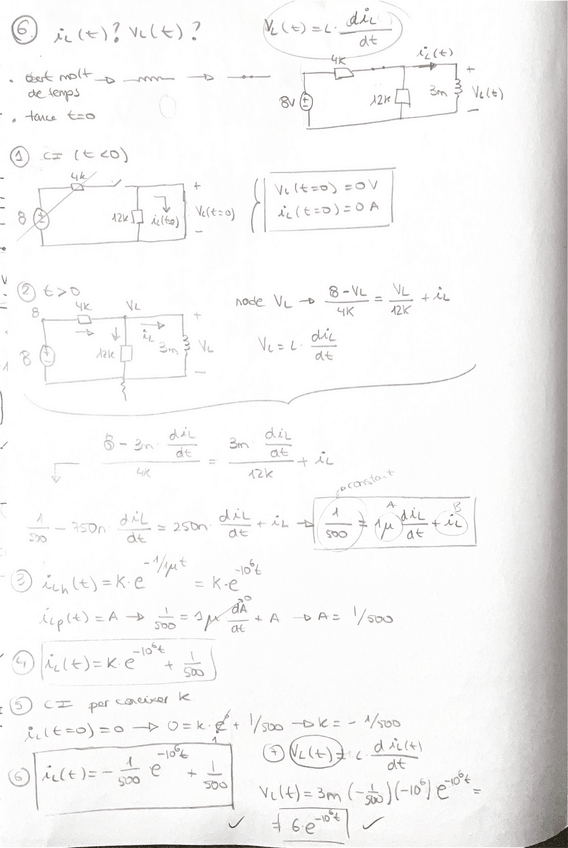 ⑥ iL(t)? VL(t)?
VL(t) = L · diL/dt
· obert molt de temps
· tanca t=0
4K
iL(t)
8V
12K
3m
+
VL(t)
−
① CI (t<0)
4K
8
12K
iL(t=0)
+
VL(t=0)
−
VL(t=0) = 0 V
iL(t=0) = 0 A
② t>0
8
4K
VL
+
8
12K
iL
3m
VL
−
node VL → (8−VL)/4K = VL/12K + iL
VL = L · diL/dt
(8 − 3m · diL/dt)/4K = (3m · diL/dt)/12K + iL
1/500 − 750n · diL/dt = 250n · diL/dt + iL → 1/500 = 1μ diL/dt + iL
A
B
③ iLh(t) = K·e^(−1/1μ t) = K·e^(−10⁶t)
iLp(t) = A → 1/500 = 1μ dA/dt + A → A = 1/500
0
④ iL(t) = K·e^(−10⁶t) + 1/500
⑤ CI per coneixer K
iL(t=0) = 0 → 0 = K·e⁰ + 1/500 → K = − 1/500
1
⑥ iL(t) = − 1/500 e^(−10⁶t) + 1/500
⑦ VL(t) = L · d iL(t)/dt
VL(t) = 3m (−1/500)(−10⁶) e^(−10⁶t) =
= 6·e^(−10⁶t)